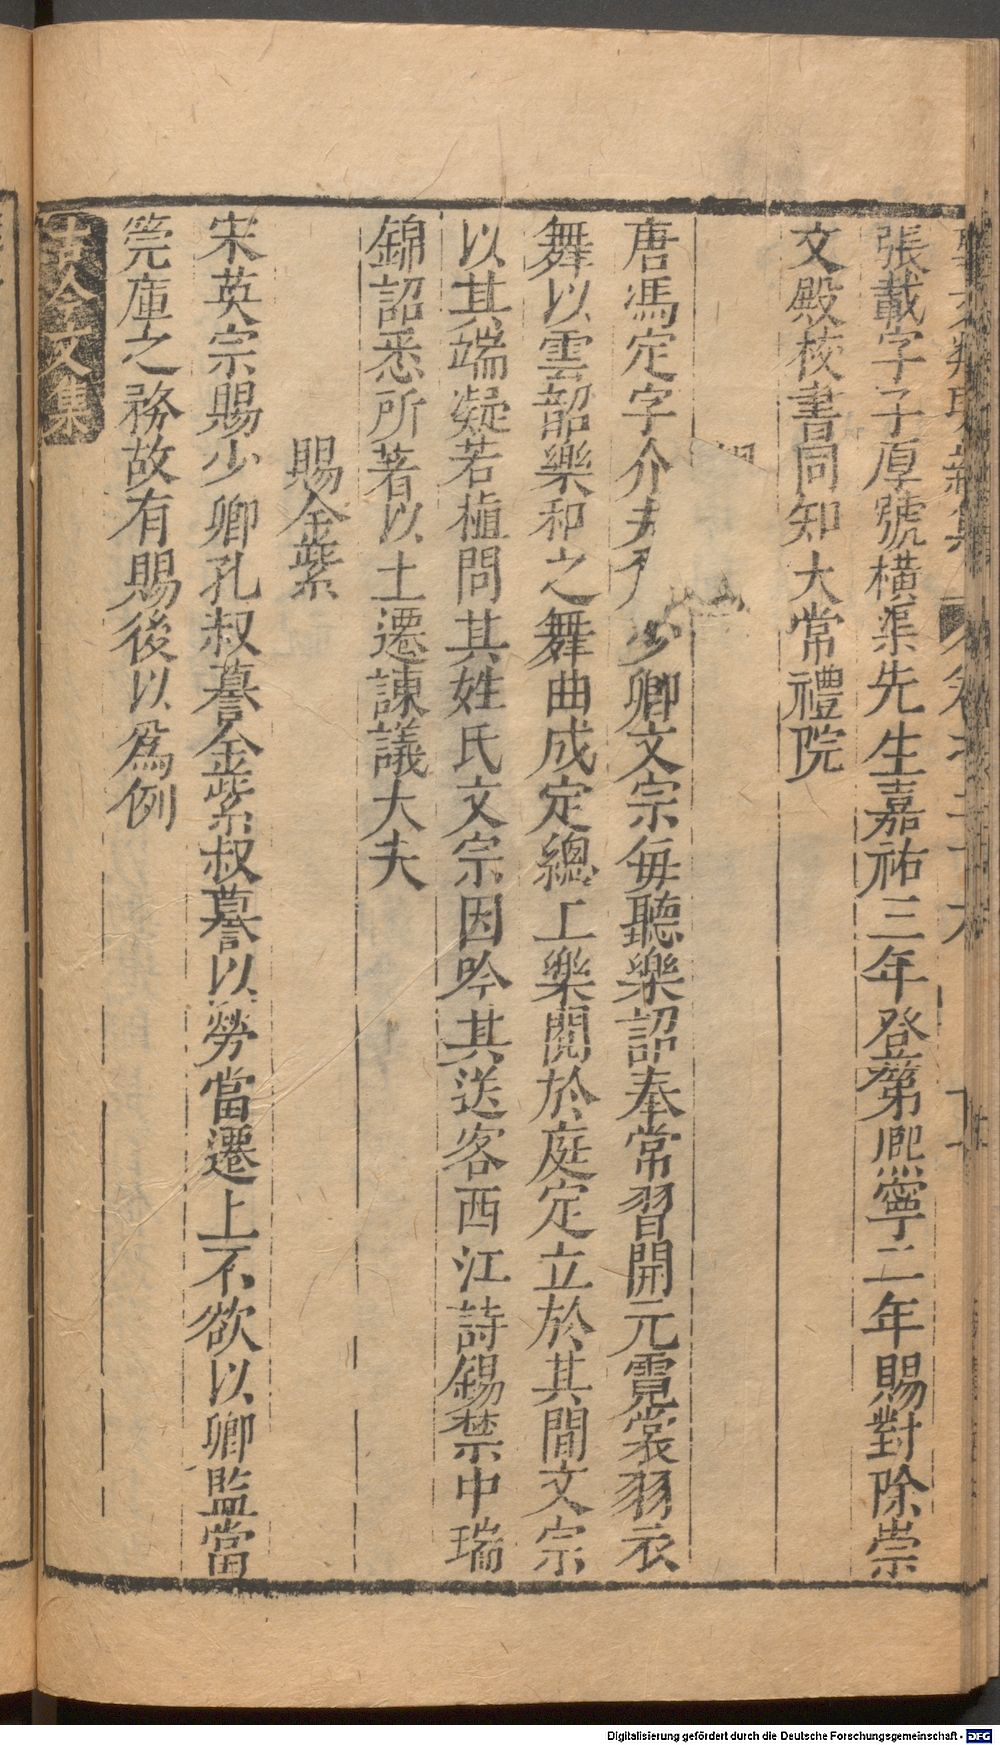 張載字子厚號橫渠先生嘉祐三年登第熈寧二年賜對除崇
文殿校書同知大常禮院
唐馮定字介夫 少卿文宗每聽樂詔奉常習開元霓裳羽衣
舞以雲韶樂和之舞曲成定總工樂閱於庭定立於其間文宗
以其端凝若植問其姓氏文宗因吟其送客西江詩錫禁中瑞
錦詔悉所著以土遷諫議大夫
賜金紫
宋英宗賜少卿孔叔詹金紫叔詹以勞當遷上不欲以卿監當
筦庫之務故有賜後以爲例
古今文集
Digitalisierung gefördert durch die Deutsche Forschungsgemeinschaft - DFG